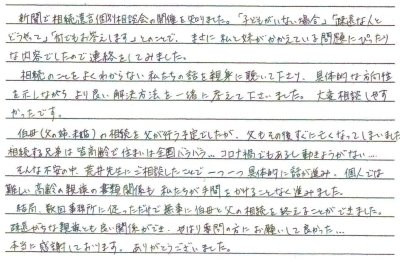 新聞で相続遺言個別相談会の開催を知りました。「子どもがいない場合」「疎遠な人と
どうやって」「何でもお答えします」とのことで、まさに私と妹がかかえている問題にぴったり
な内容でしたので連絡をしてみました。
相続のことをよくわからない私たちの話を親身に聴いて下さり、具体的な方向性
を示しながらより良い解決方法を一緒に考えて下さいました。大変相談しやす
かったです。
伯母(父の姉未婚)の相続を父が行う予定でしたが、父もその後すぐに亡くなってしまいました
相続する兄弟は皆高齢で住まいは全国バラバラ…コロナ禍でもあるし動きようがない…
そんな不安の中、荒井先生にご相談したことで一つ一つ具体的に話が進み、個人では
難しい高齢の親族の書類関係も私たちが手間をかけることなく進みました。
結局、数回事務所に伺っただけで無事に伯母と父の相続を終えることができました。
疎遠がちな親族とも良い関係ができ、やはり専門の方にお願いして良かった…
本当に感謝しております。ありがとうございました。